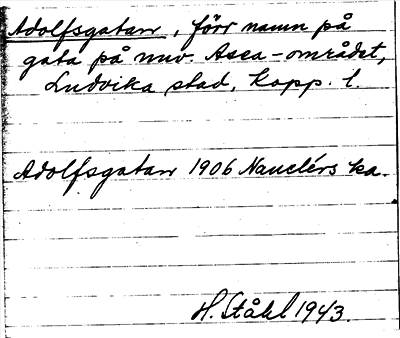 Adolfsgatan, förr namn på
gata på nuv. Asea-området,
Ludvika stad, Kopp. l.
Adolfsgatan 1906 Nauclérs ka.
H. Ståhl 1943.